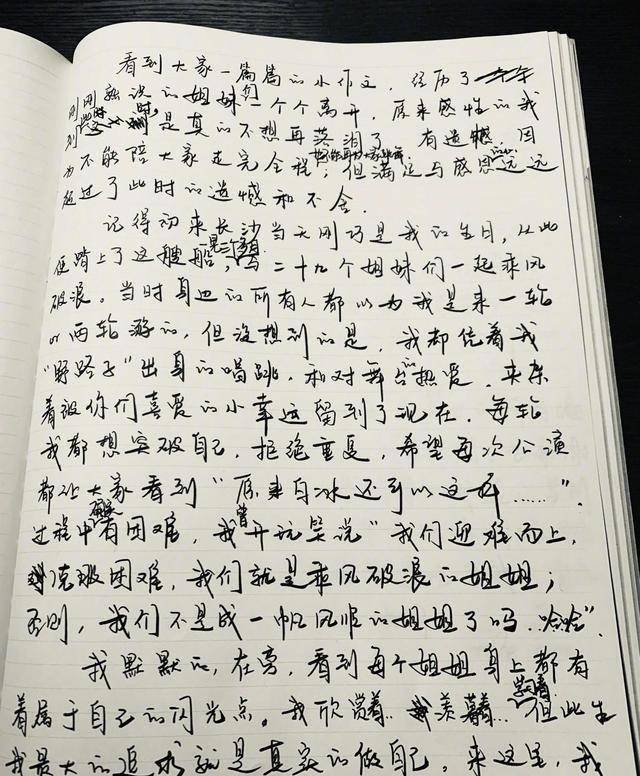 看到大家一篇篇的小作文，经历了
刚刚熟识的姐妹们一个个离开，原来感性的我
到此时，是真的不想再落泪了。有遗憾，因
为不能陪大家走完全程，但满足与感恩远远
超过了此时的遗憾和不舍。
记得初来长沙当天刚巧是我的生日，从此
便踏上了这艘船，与二十九个姐妹们一起乘风
破浪。当时身边的所有人都以为我是来一轮
or两轮游的，但没想到的是，我却凭着我
“野路子”出身的唱跳，和对舞台的热爱，夹杂
着被你们喜爱的小幸运留到了现在，每轮
我都想突破自己，拒绝重复，希望每次公演
都让大家看到“原来白冰还可以这样……”.
过程中有困难，我曾开玩笑说“我们迎难而上，
克服困难，我们就是乘风破浪的姐姐；
否则，我们不是成一帆风顺的姐姐了吗.哈哈”.
我默默的，在旁，看到每个姐姐身上都有
着属于自己的闪光点。我欣赏着..羡慕着...但此生
我最大的追求就是真实的做自己。来这里，我